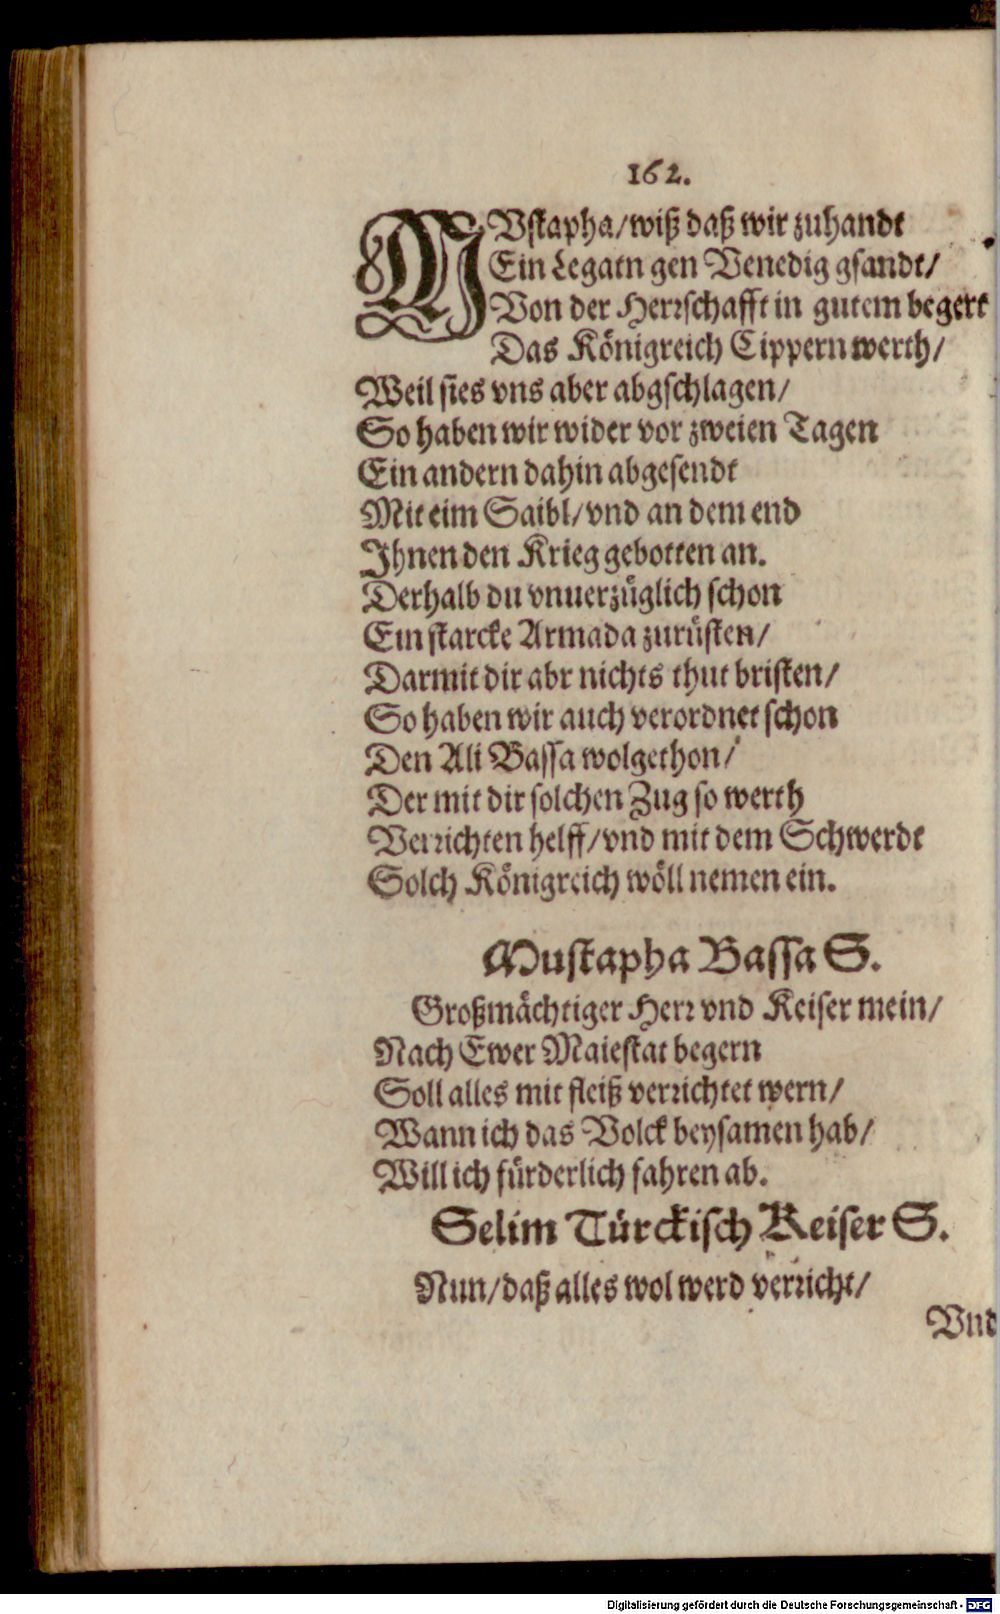 162.
MVstapha/wiß daß wir zuhandt
Ein Legatn gen Venedig gsandt/
Von der Herrschafft in gutem begert
Das Königreich Cippern werth/
Weil sies vns aber abgschlagen/
So haben wir wider vor zweien Tagen
Ein andern dahin abgesendt
Mit eim Saibl/vnd an dem end
Ihnen den Krieg gebotten an.
Derhalb du vnuerzüglich schon
Ein starcke Armada zurüsten/
Darmit dir abr nichts thut bristen/
So haben wir auch verordnet schon
Den Ali Bassa wolgethon/
Der mit dir solchen Zug so werth
Verrichten helff/vnd mit dem Schwerdt
Solch Königreich wöll nemen ein.
Mustapha Bassa S.
Großmächtiger Herr vnd Keiser mein/
Nach Ewer Maiestat begern
Soll alles mit fleiß verrichtet wern/
Wann ich das Volck beysamen hab/
Will ich fürderlich fahren ab.
Selim Türckisch Keiser S.
Nun/daß alles wol werd verricht/
Vnd
Digitalisierung gefördert durch die Deutsche Forschungsgemeinschaft - DFG